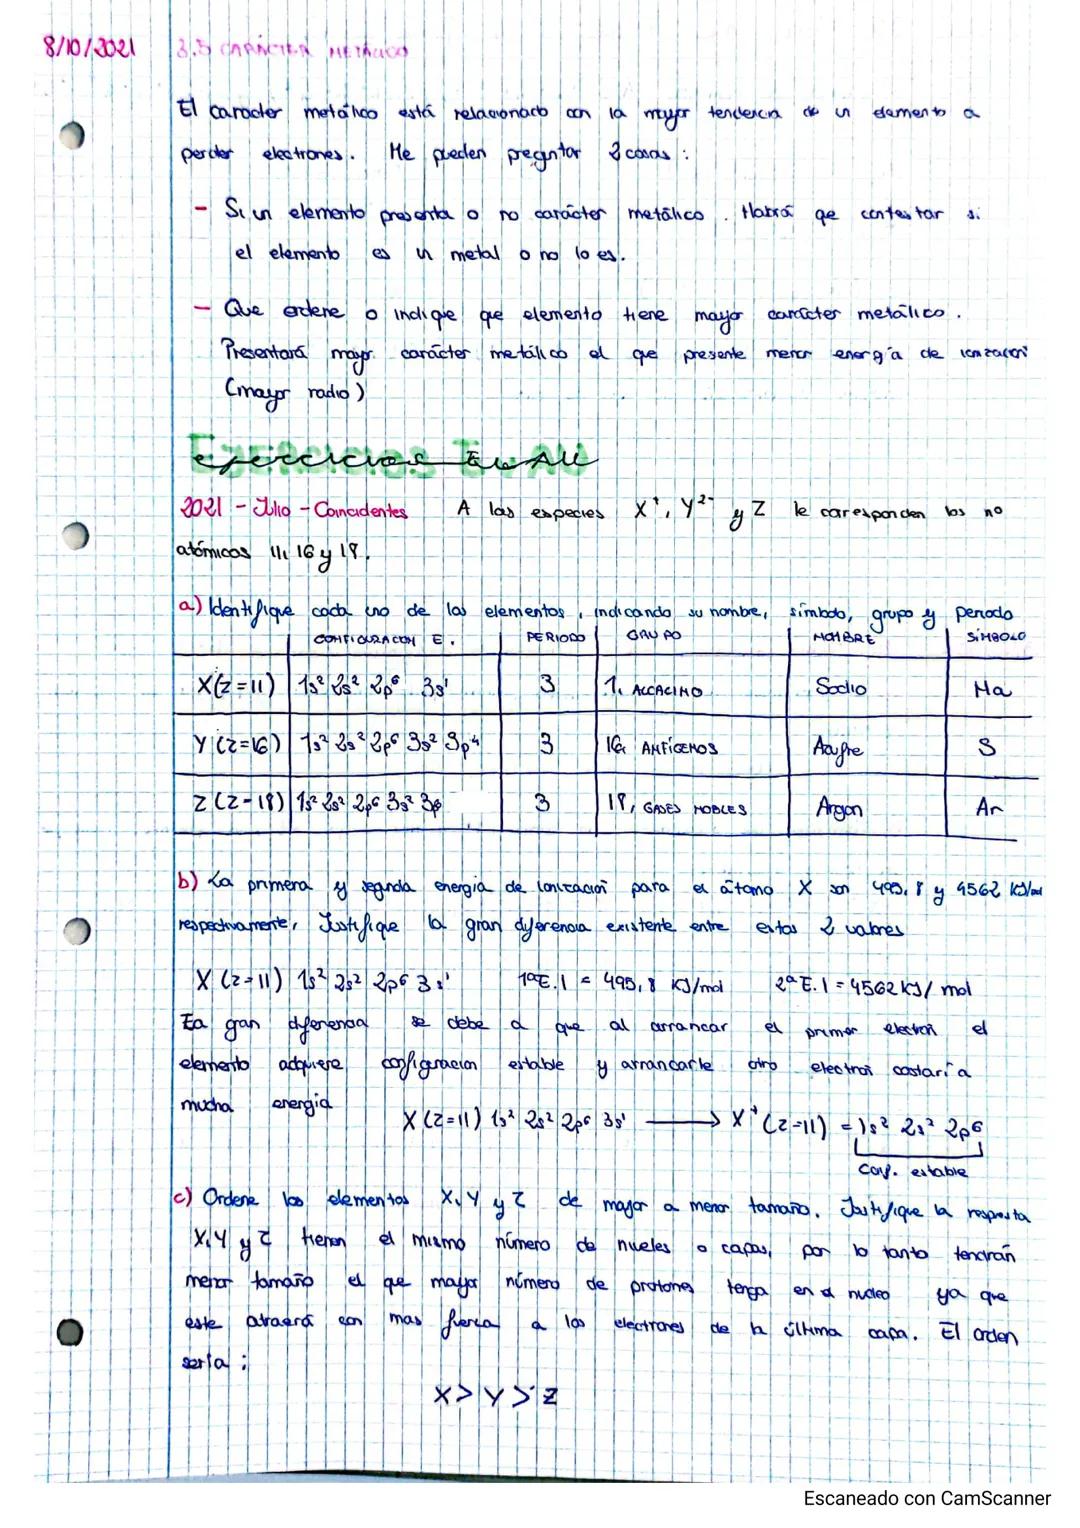 8/10/2021 3.5 CARÁCTER METÁLICO
El caracter metálico está relacionado con la mayor tendencia de un elemento a
perder electrones. Me pueden pregntar 2 cosas :
- Si un elemento presenta o no carácter metálico. Habrá qe contestar si
el elemento es un metal o no lo es.
- Que ordene o indique qe elemento tiene mayor carácter metálico.
Presentará mayor carácter metálico el qe presente menor energía de ionización
(mayor radio)
Ejercicios EvAU
2021 - Julio - Coincidentes A las especies X⁺, Y²⁻ y Z le corresponden los no
atómicos 11, 16 y 18.
a) Identifique cada uno de los elementos, indicando su nombre, símbolo, grupo y periodo
CONFIGURACION E. PERIODO GRUPO NOMBRE SÍMBOLO
X(z=11) 1s² 2s² 2p⁶ 3s¹ 3 1, ALCALINO Sodio Na
Y(z=16) 1s² 2s² 2p⁶ 3s² 3p⁴ 3 16, ANFÍGENOS Azufre S
Z (Z-18) 1s² 2s² 2p⁶ 3s² 3p 3 18, GASES NOBLES Argon Ar
b) La primera y segunda energia de ionización para el átomo X son 495,8 y 4562 KJ/mol
respectivamente, Justifique la gran diferencia existente entre estos 2 valores
X (z=11) 1s² 2s² 2p⁶ 3s¹ 1ªE.I = 495,8 KJ/mol 2ªE.I = 4562 KJ/mol
La gran diferencia se debe a que al arrancar el primer electrón el
elemento adquiere configuracion estable y arrancarle otro electrón costaría
mucha energia X(Z=11) 1s² 2s² 2p⁶ 3s¹ ⟶ X⁺(z=11) = 1s² 2s² 2p⁶
conf. estable
c) Ordene los elementos X, Y y Z de mayor a menor tamaño. Justifique la respuesta
X, Y y Z tienen el mismo número de niveles o capas, por lo tanto tendrán
menor tamaño el qe mayor número de protones tenga en el nucleo ya que
este atraerá con mas fuerza a los electrones de la última capa. El orden
sería :
X > Y > Z
Escaneado con CamScanner